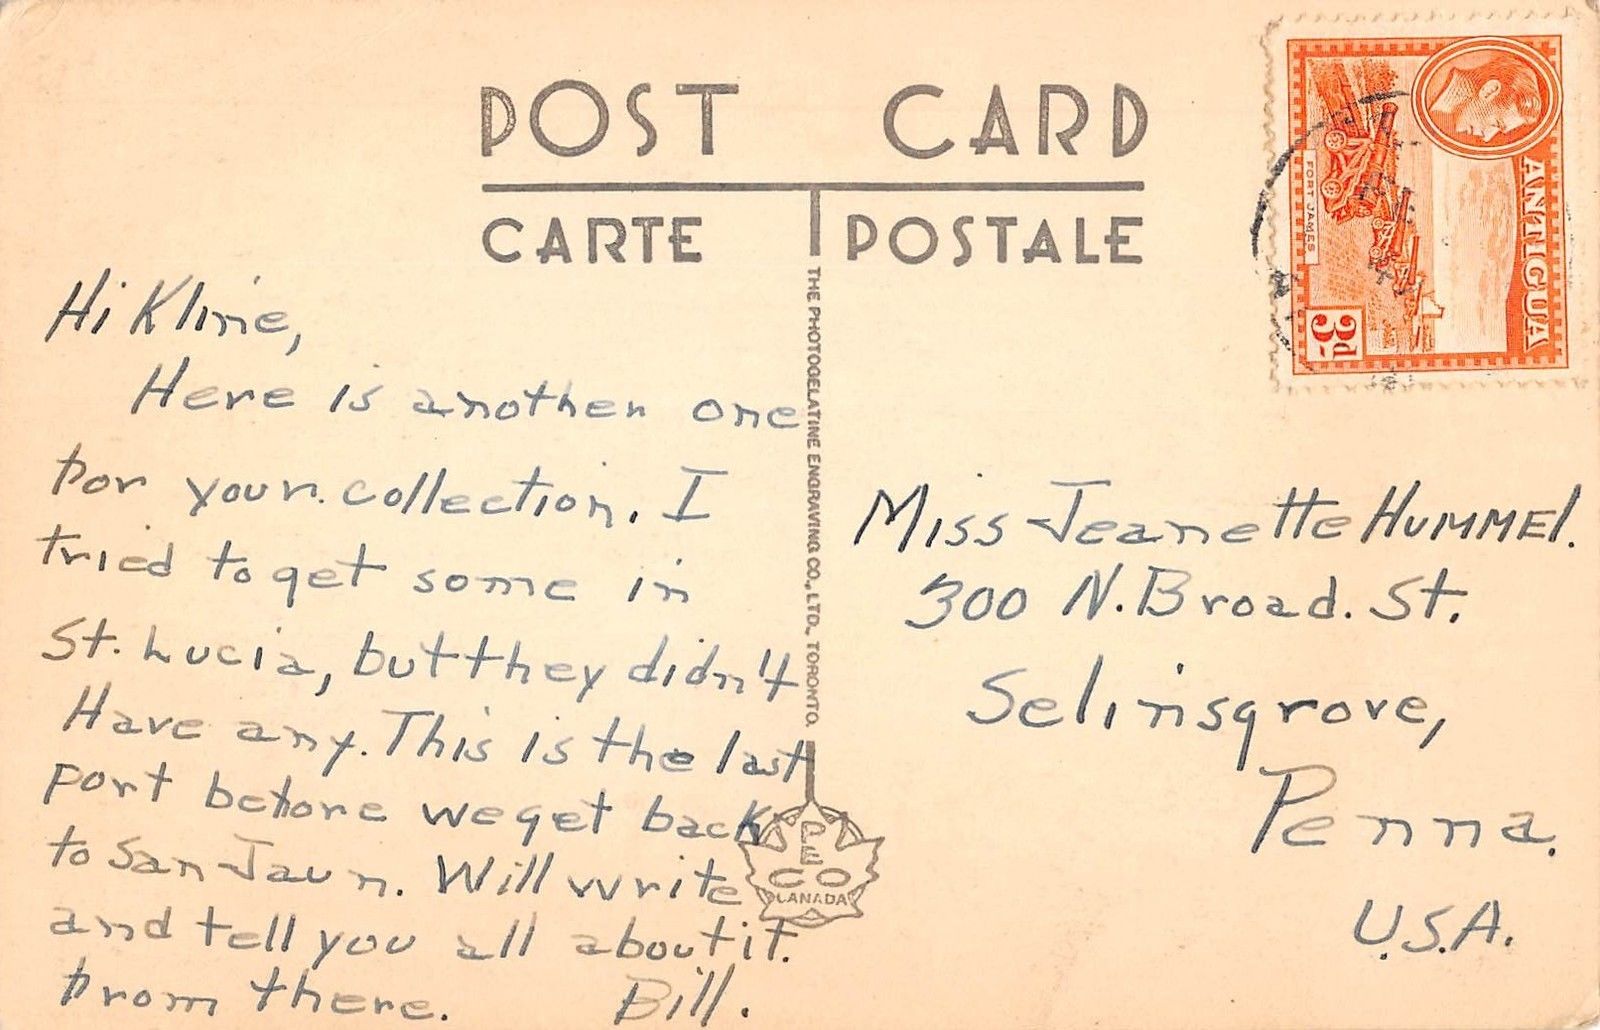 POST CARD
CARTE POSTALE
Hi Kline,
Here is another one
for your collection. I
tried to get some in
St. Lucia, but they didn't
Have any. This is the last
port before we get back
to San Jaun. Will write
and tell you all about it.
from there. Bill.
THE PHOTOGELATINE ENGRAVING CO., LTD., TORONTO.
PECO
CANADA
ANTIGUA
FORT JAMES
3d
Miss Jeanette HUMMEl.
300 N. Broad. St.
Selinsgrove,
Penna.
U.S.A.